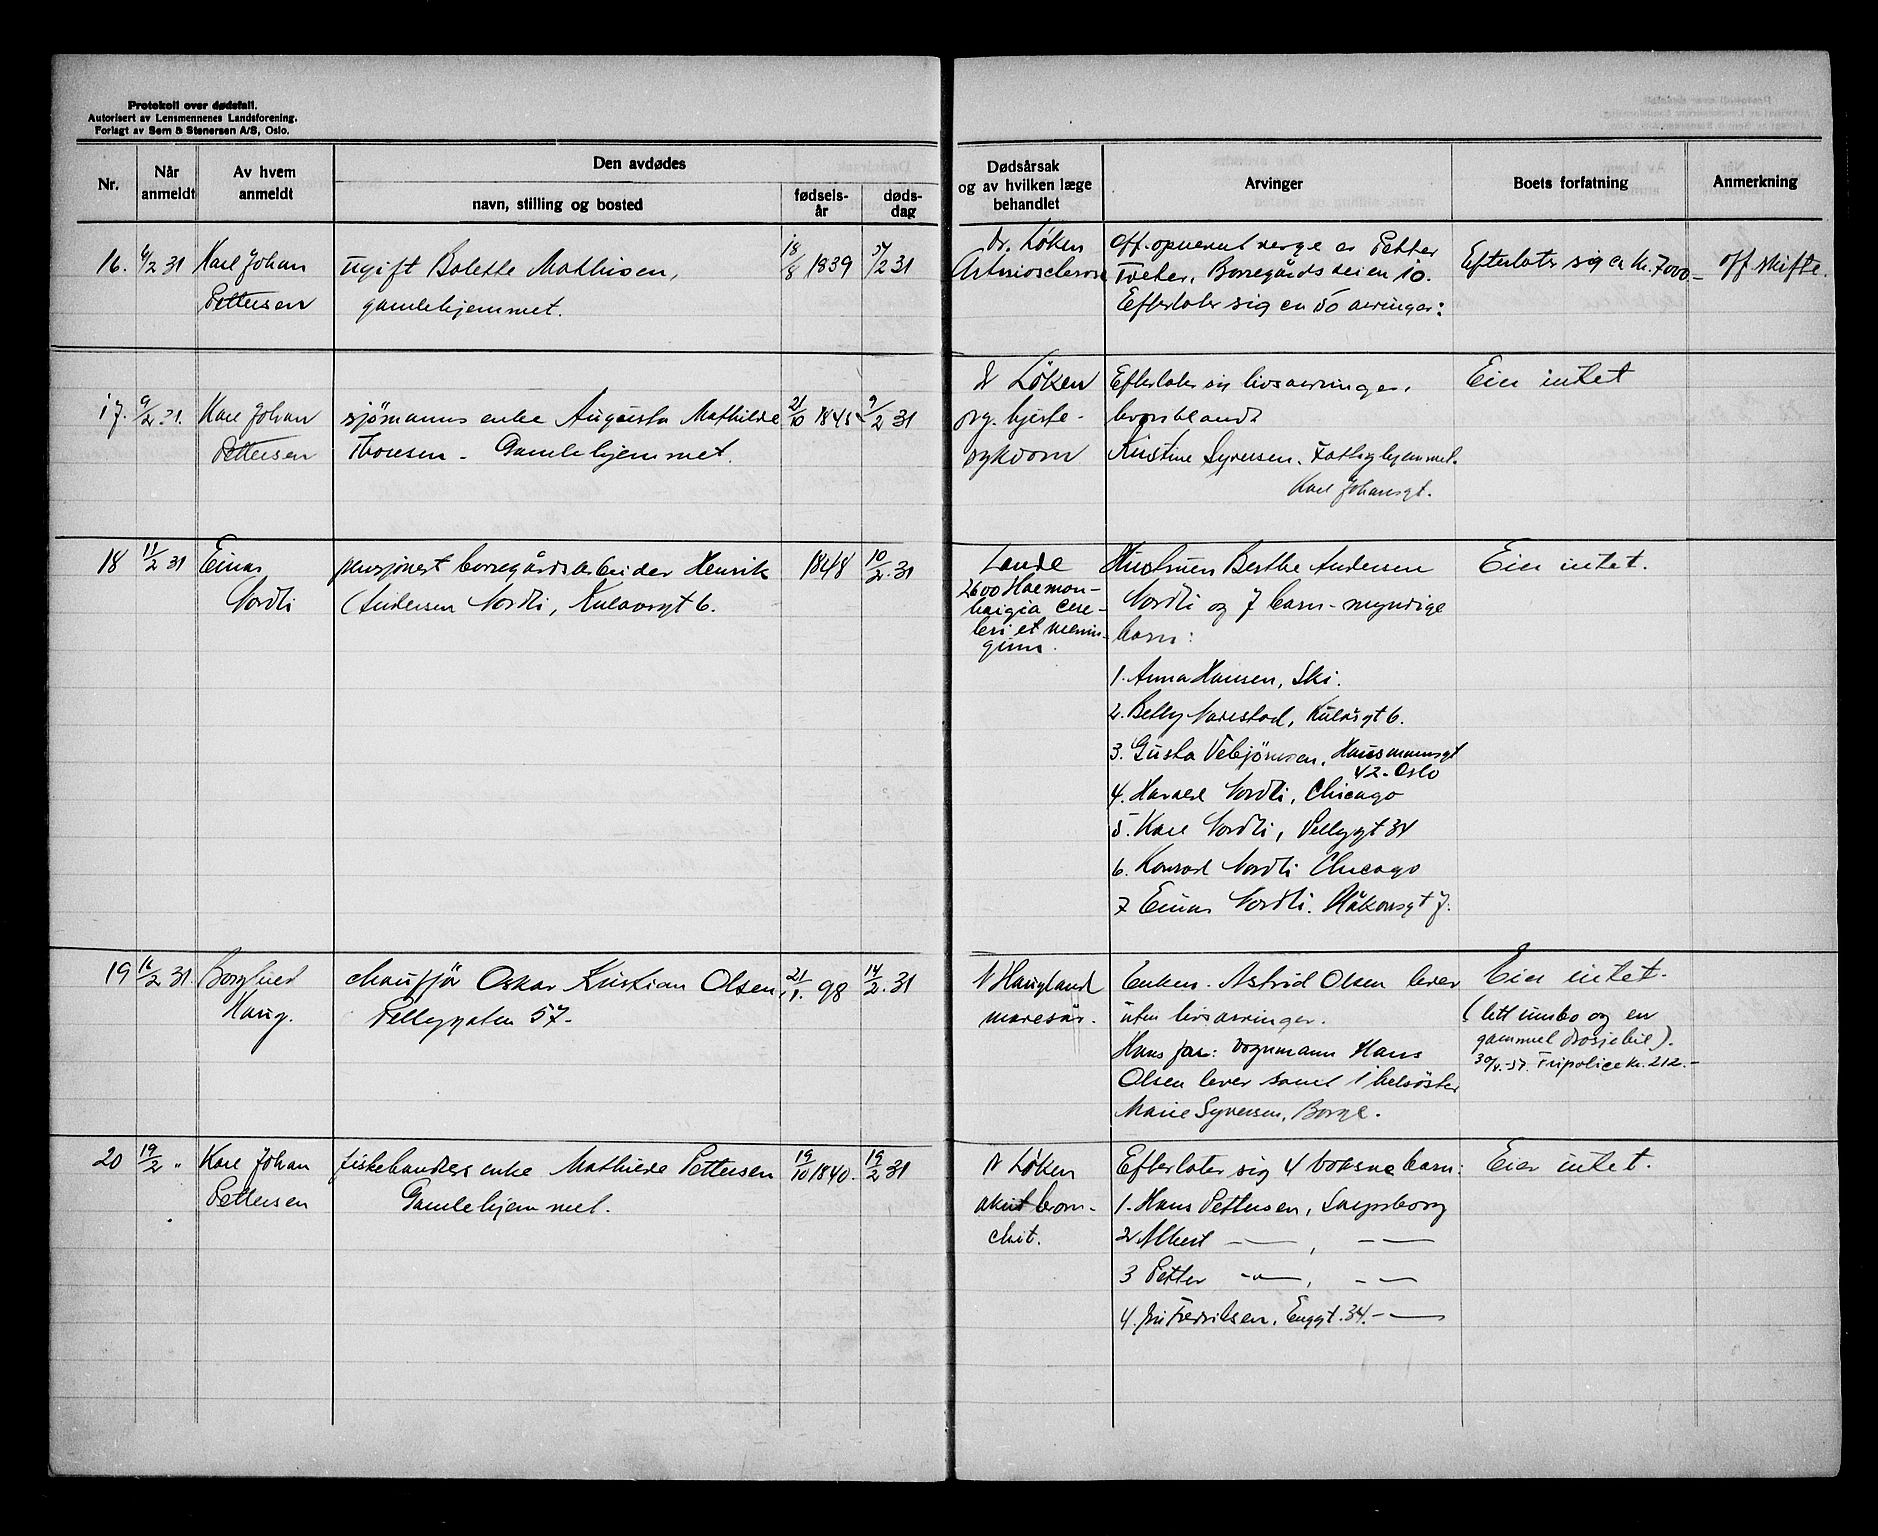 Protokoll over dødsfall.
Autorisert av Lensmennenes Landsforening.
Forlagt av Sem & Stenersen A/S, Oslo.
Nr.
Når anmeldt
Av hvem anmeldt
Den avdødes
navn, stilling og bosted
fødselsår
dødsdag
Dødsårsak og av hvilken læge behandlet
Arvinger
Boets forfatning
Anmerkning
16. 6/2 31 Karl Johan
Pettersen
ugift Bolette Mathisen,
gamlehjemmet.
18/8 1839
5/2 31
dr. Løken
Arteriosclerose
Off. opnevnt verge er Petter
Tveter, Borregårdsveien 10.
Efterlater sig en 50 arvinger:
Efterlater sig ca kr. 7000.-
off skifte.
17. 9/2 31. Karl Johan
Pettersen
sjömanns enke Augusta Mathilde
Thoresen - Gamlehjemmet.
21/10 1845
9/2 31
dr Löken
org. hjerte-
sykdom
Efterlater sig livsarvinger,
hvoriblandt
Kristine Syversen, Fattighjemmet.
Karl Johansgt.
Eier intet
18 11/2 31 Einar
Nordli
pensjonert borregårdsarbeider Henrik
Andersen Nordli, Kulåsgt 6.
1848
10/2. 31
Lande
2600 Haemorr-
haigia cere-
bri et menin-
gium.
Hustruen Berthe Andersen
Nordli og 7 barn - myndige
barn:
1. Anna Hansen, Ski.
2. Betty Narestad, Kulåsgt 6.
3. Gusta Vebjörnsen, Hausmannsgt
42. Oslo
4. Harald Nordli, Chicago
5. Karl Nordli, Pellygt 34
6. Konrad Nordli Chicago
7 Einar Nordli. Håkonsgt 7.
Eier intet.
19 16/2 31 Borghild
Haug.
chauffør Oskar Kristian Olsen,
Pellygaten 57.
21/1. 98
14/2. 31
dr Haugland
mavesår.
Enken. Astrid Olsen lever
uten livsarvinger.
Hans far: vognmann Hans
Olsen lever samt 1 helsöster
Marie Syversen, Borge.
Eier intet.
(litt innbo og en
gammel drosjebil).
Fripolice kr. 212.-
20 19/2 " Karl Johan
Pettersen
fiskehandlers enke Mathilde Pettersen
Gamlehjemmet.
19/10 1840.
19/2 31
dr Løken
akut bron-
chit.
Efterlater sig 4 voksne barn:
1. Hans Pettersen, Sarpsborg
2 Albert -"-, -"-
3 Petter -"-, -"-
4. fru Fredriksen, Enggt. 34. -"-
Eier intet.